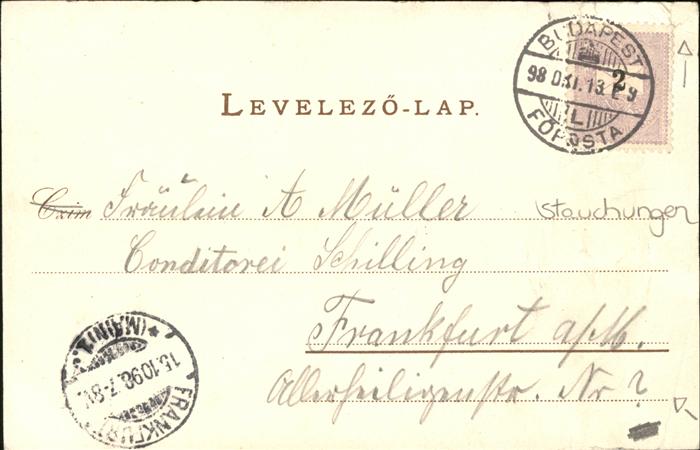 BUDAPEST
98 OKT. 13. E 9
2
L
FŐPOSTA
LEVELEZŐ-LAP.
Czim Fräulein A Müller
Stauchungen
Conditorei Schilling
Frankfurt a/M.
Allerheiligenstr. Nr ?
FRANKFURT
(MAIN) 1.
15.10.98.7-8N.